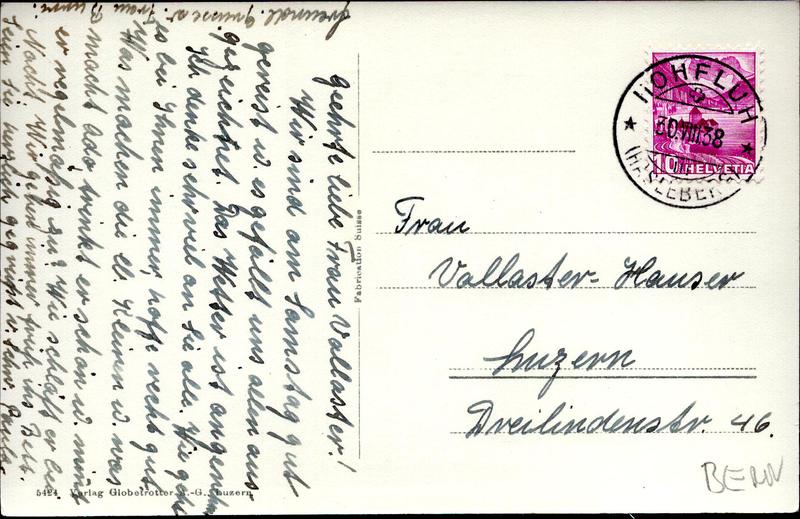 Geehrte liebe Frau Vallaster!
Wir sind am Samstag gut
gereist u. es gefällt uns allen aus-
gezeichnet. Das Wetter ist angenehm
Ich denke sehr viel an Sie alle. Wie geht
es bei Ihnen immer, hoffe recht gut
Was machen die lb. Kleinen u. was
macht ado trinkt er schön u. nimt
er reglmäsig zu? Wie schläft er bei
Nacht. Wir gehen immer früh ins Bett.
Seien Sie herzlich gegrüsst v. Ihrer Paula.
Freundl. Grüsse v. Frau B
Fabrication Suisse
5424 Verlag Globetrotter A.-G., Luzern
HOHFLUH
30.VIII.38
(HASLEBERG)
10 HELVETIA
Frau
Vallaster-Hauser
Luzern
Dreilindenstr. 46.
BERN